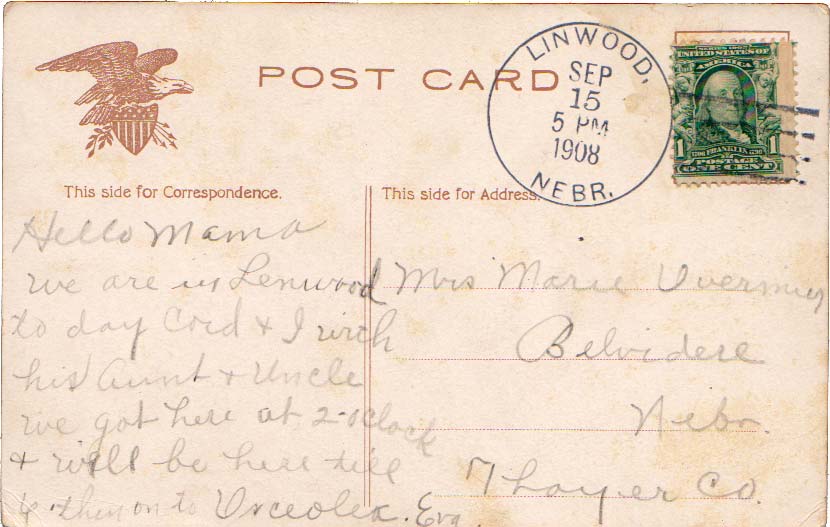 POST CARD
LINWOOD,
SEP
15
5 PM
1908
NEBR.
SERIES 1902
UNITED STATES OF
AMERICA
1 1706 FRANKLIN 1790 1
POSTAGE
ONE CENT
This side for Correspondence.
Hello Mama
we are in Lenwood
to day Cord & I with
his Aunt & Uncle
we got here at 2-oclock
& will be here till
6 then on to Osceolea. Eva
This side for Address.
Mrs Marie
Belvidere
Nebr.
Thayer Co.